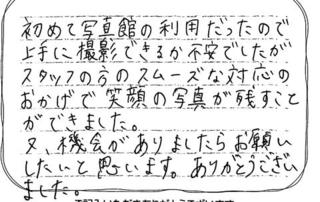 初めて写真館の利用だったので
上手に撮影できるか不安でしたが
スタッフの方のスムーズな対応の
おかげで笑顔の写真が残すこと
ができました。
又、機会がありましたらお願い
したいと思います。ありがとうござい
ました。